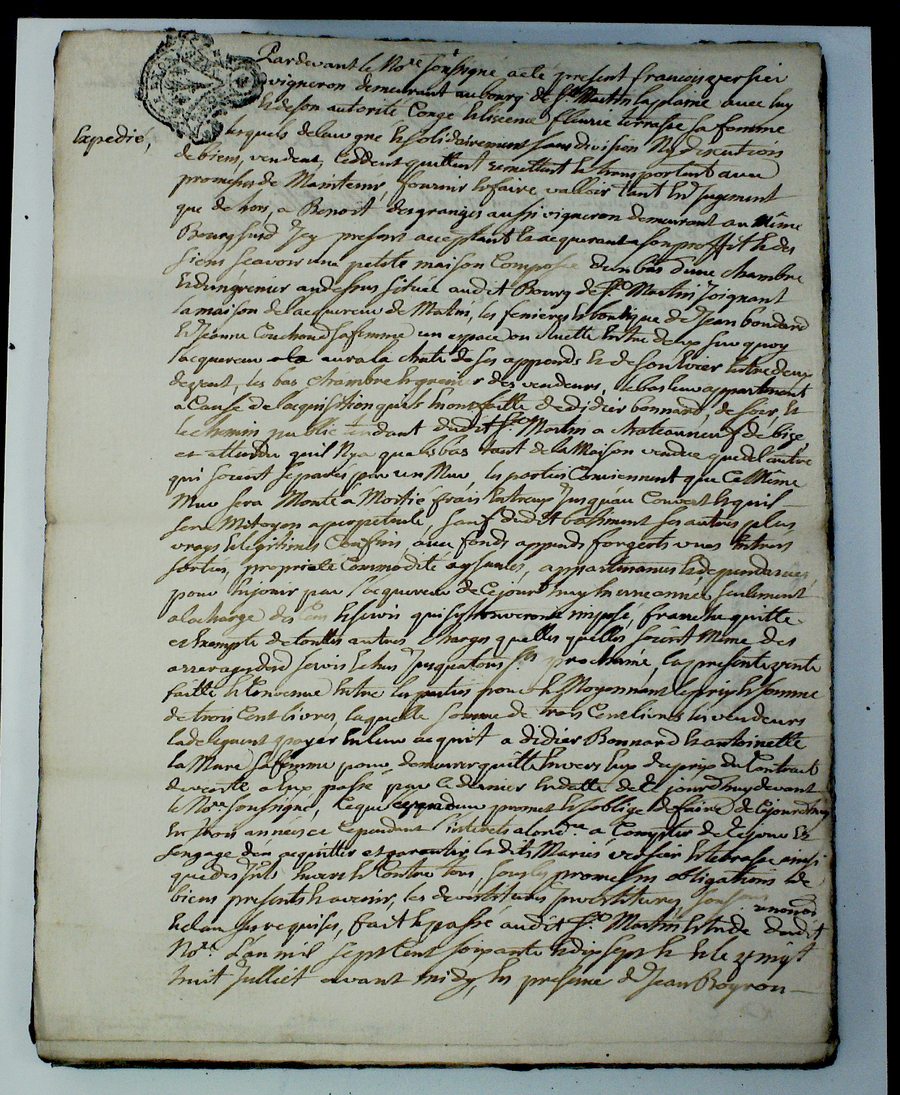 Pardevant le No.re soussigné a eté present Francois versier
vigneron demeurant au bourg de St Martin la plaine avec luy
Expedié,
& de son autorité Congé & licence fleurie terrasse sa femme
lesquels de leur gré & solidairement sans division Ny discution
de biens, vendent, ceddent quittent remettent & transportent avec
promesse de Maintenir, fournir & faire valloir tant En Jugement
que dehors, a Benoit desgranges aussi vigneron demeurant au même
Bourg susd. Icy present acceptant & acquerant a son proffit & des
siens scavoir une petite maison Composée d'un bas d'une chambre
& d'un grenier au dessus située audit Bourg de St Martin Joignant
la maison de lacquereur de Matin, les fenieres & boutique de Jean bondard
& Jeanne Couchoud sa femme un espace ou Ruette Entre deux sur quoy
lacquereur aura la chute de ses appends & de son Evier Entre deux
de vent, les bas chambre & grenier des vendeurs, le bas leur appartenant
a Cause de lacquisition qu'ils En ont faitte de didier bonnard, de soir, &
le chemin public tendant dudit St Martin a chateauneuf de bize,
et attendu quil Nya que les bas tant de la Maison vendue que de lautre
qui soient separés par un Mur, les parties Conviennent que Ce Même
Mur sera Monté a Mortié frais Entreux Jusquau Couvert & quil
sera Mitoyen a perpetuité, sauf dudit batiment ses autres plus
vrays & legitimes Confins, avec fonds appends forgets vues Entrées
sorties, proprieté Commodité aysances, appartenances & dependances
pour En jouir par l'acquereur de Cejourdhuy En une année seulement
a la charge des Cens & servis qui sy trouveront imposé, franche quitte
et Exempte de touttes autres charges quelles quelles soient Même des
arrerages desd. servis Echus Jusqua tous Sts prochaine, la presente vente
faitte & Convenue Entre les parties pour & Moyennant le prix & somme
de trois Cent livres, laquelle somme de trois Cent livres les vendeurs
la deleguent payer En leur acquit a didier Bonnard & antoinette
la Mure sa femme pour demeurer quitte Envers Eux du prix du Contract
de vente a Eux passé par Ce dernier En datte de Ce jourdhuy devant
le No.re soussigné, Ce que lacquereur promet & soblige de faire de Cejourdhuy
En trois années Cependant l'interets a lord.re a Compter de Cejour &
sengage d'en acquitter et garentir lesdits Mariés versier & terrasse ainsi
que des frais Envers & Contre tous, sous les promesses obligations de
biens presents & avenir, les devestitures Investitures, soumissions renonciations
& clauses requises, fait & passé audit St Martin Etude dudit
No.re L'an mil sept Cent soixante & dix sept & le vingt
huit Juillet avant midy, En presence de Jean Boyron